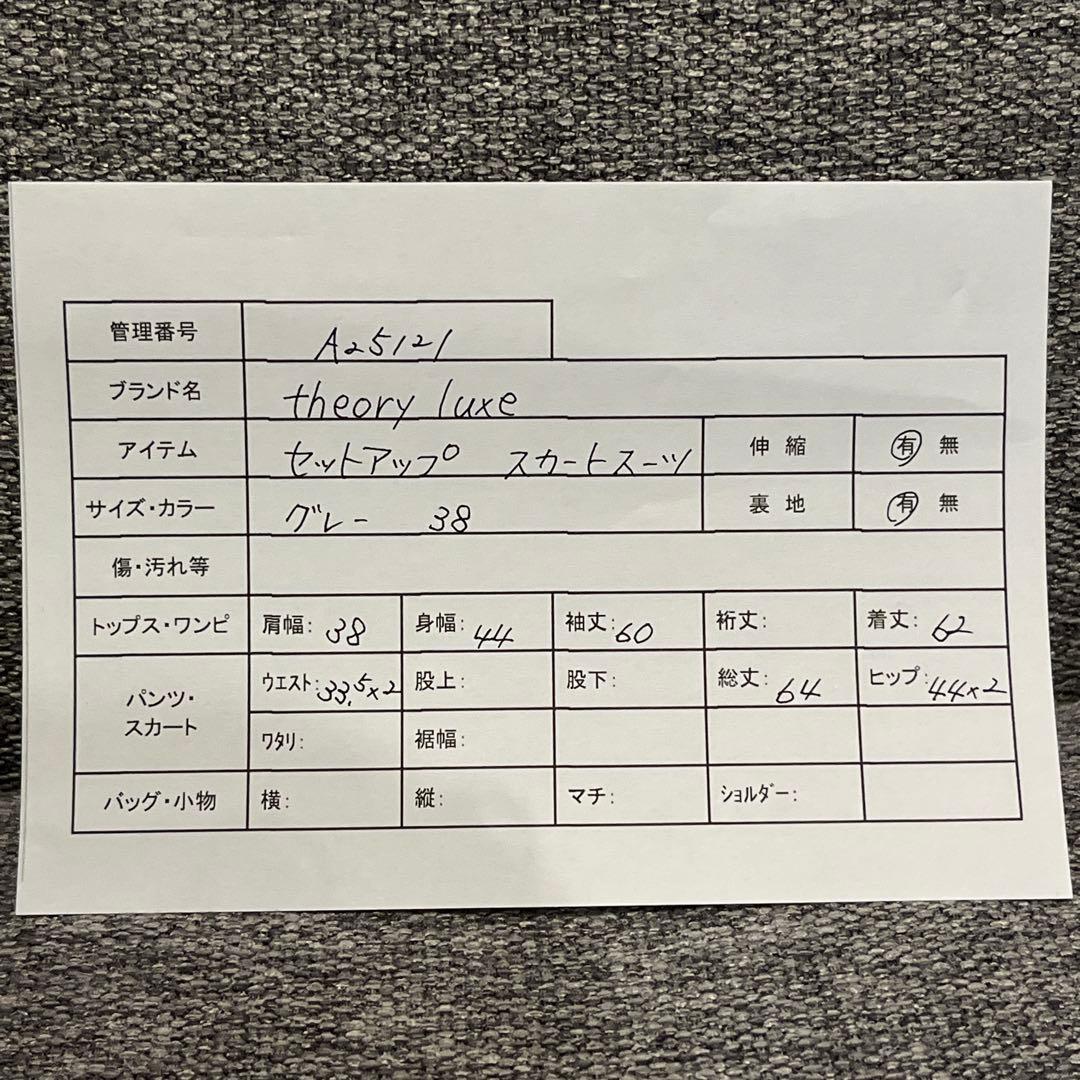 管理番号 A25121
ブランド名 theory luxe
アイテム セットアップ スカートスーツ 伸縮 有 無
サイズ・カラー グレー 38 裏地 有 無
傷・汚れ等
トップス・ワンピ 肩幅: 38 身幅: 44 袖丈: 60 裄丈: 着丈: 62
パンツ・スカート ウエスト: 33.5×2 股上: 股下: 総丈: 64 ヒップ: 44×2
ワタリ: 裾幅:
バッグ・小物 横: 縦: マチ: ショルダー: